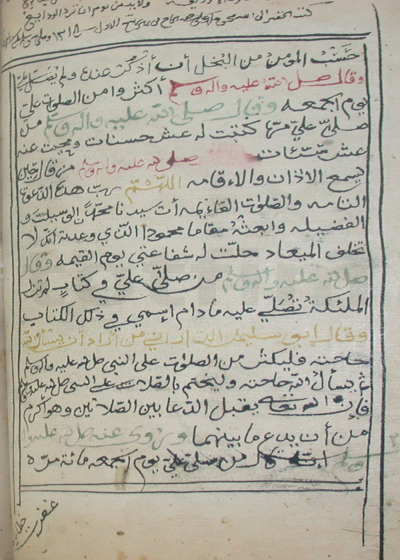 حسب المؤمن من البخل أن أذكر عنده ولم يصل علي
وقال صلى الله عليه واله وسلم أكثروا من الصلوة علي
يوم الجمعه وقال صلى الله عليه واله وسلم من
صلى علي مرة كتبت له عشر حسنات ومحيت عنه
عشر سيئات صلى الله عليه واله وسلم من قال حين
يسمع الاذان والاقامه اللهم رب هذه الدعوة
التامه والصلوة القائمه أت سيدنا محمد الوسيلة و
الفضيله وابعثه مقاما محمودا الذي وعدته انك لا
تخلف الميعاد حلت له شفاعتي يوم القيمه وقال
صلى الله عليه واله وسلم من صلى علي في كتاب لم تزل
الملئكة تصلي عليه مادام اسمي في ذلك الكتاب
وقال ابو سليمان الداراني من اراد أن يسأل الله
حاجته فليكثر من الصلوة على النبي صلى الله عليه واله وسلم
ثم يسأل الله حاجته وليختم بالصلاة على النبي صلى الله عليه وسلم
فإن الله يقبل الصلاتين وهو أكرم
من أن يدع ما بينهما وروي عنه صلى الله عليه و
من صلى علي يوم الجمعه مائة مرة
غفرت